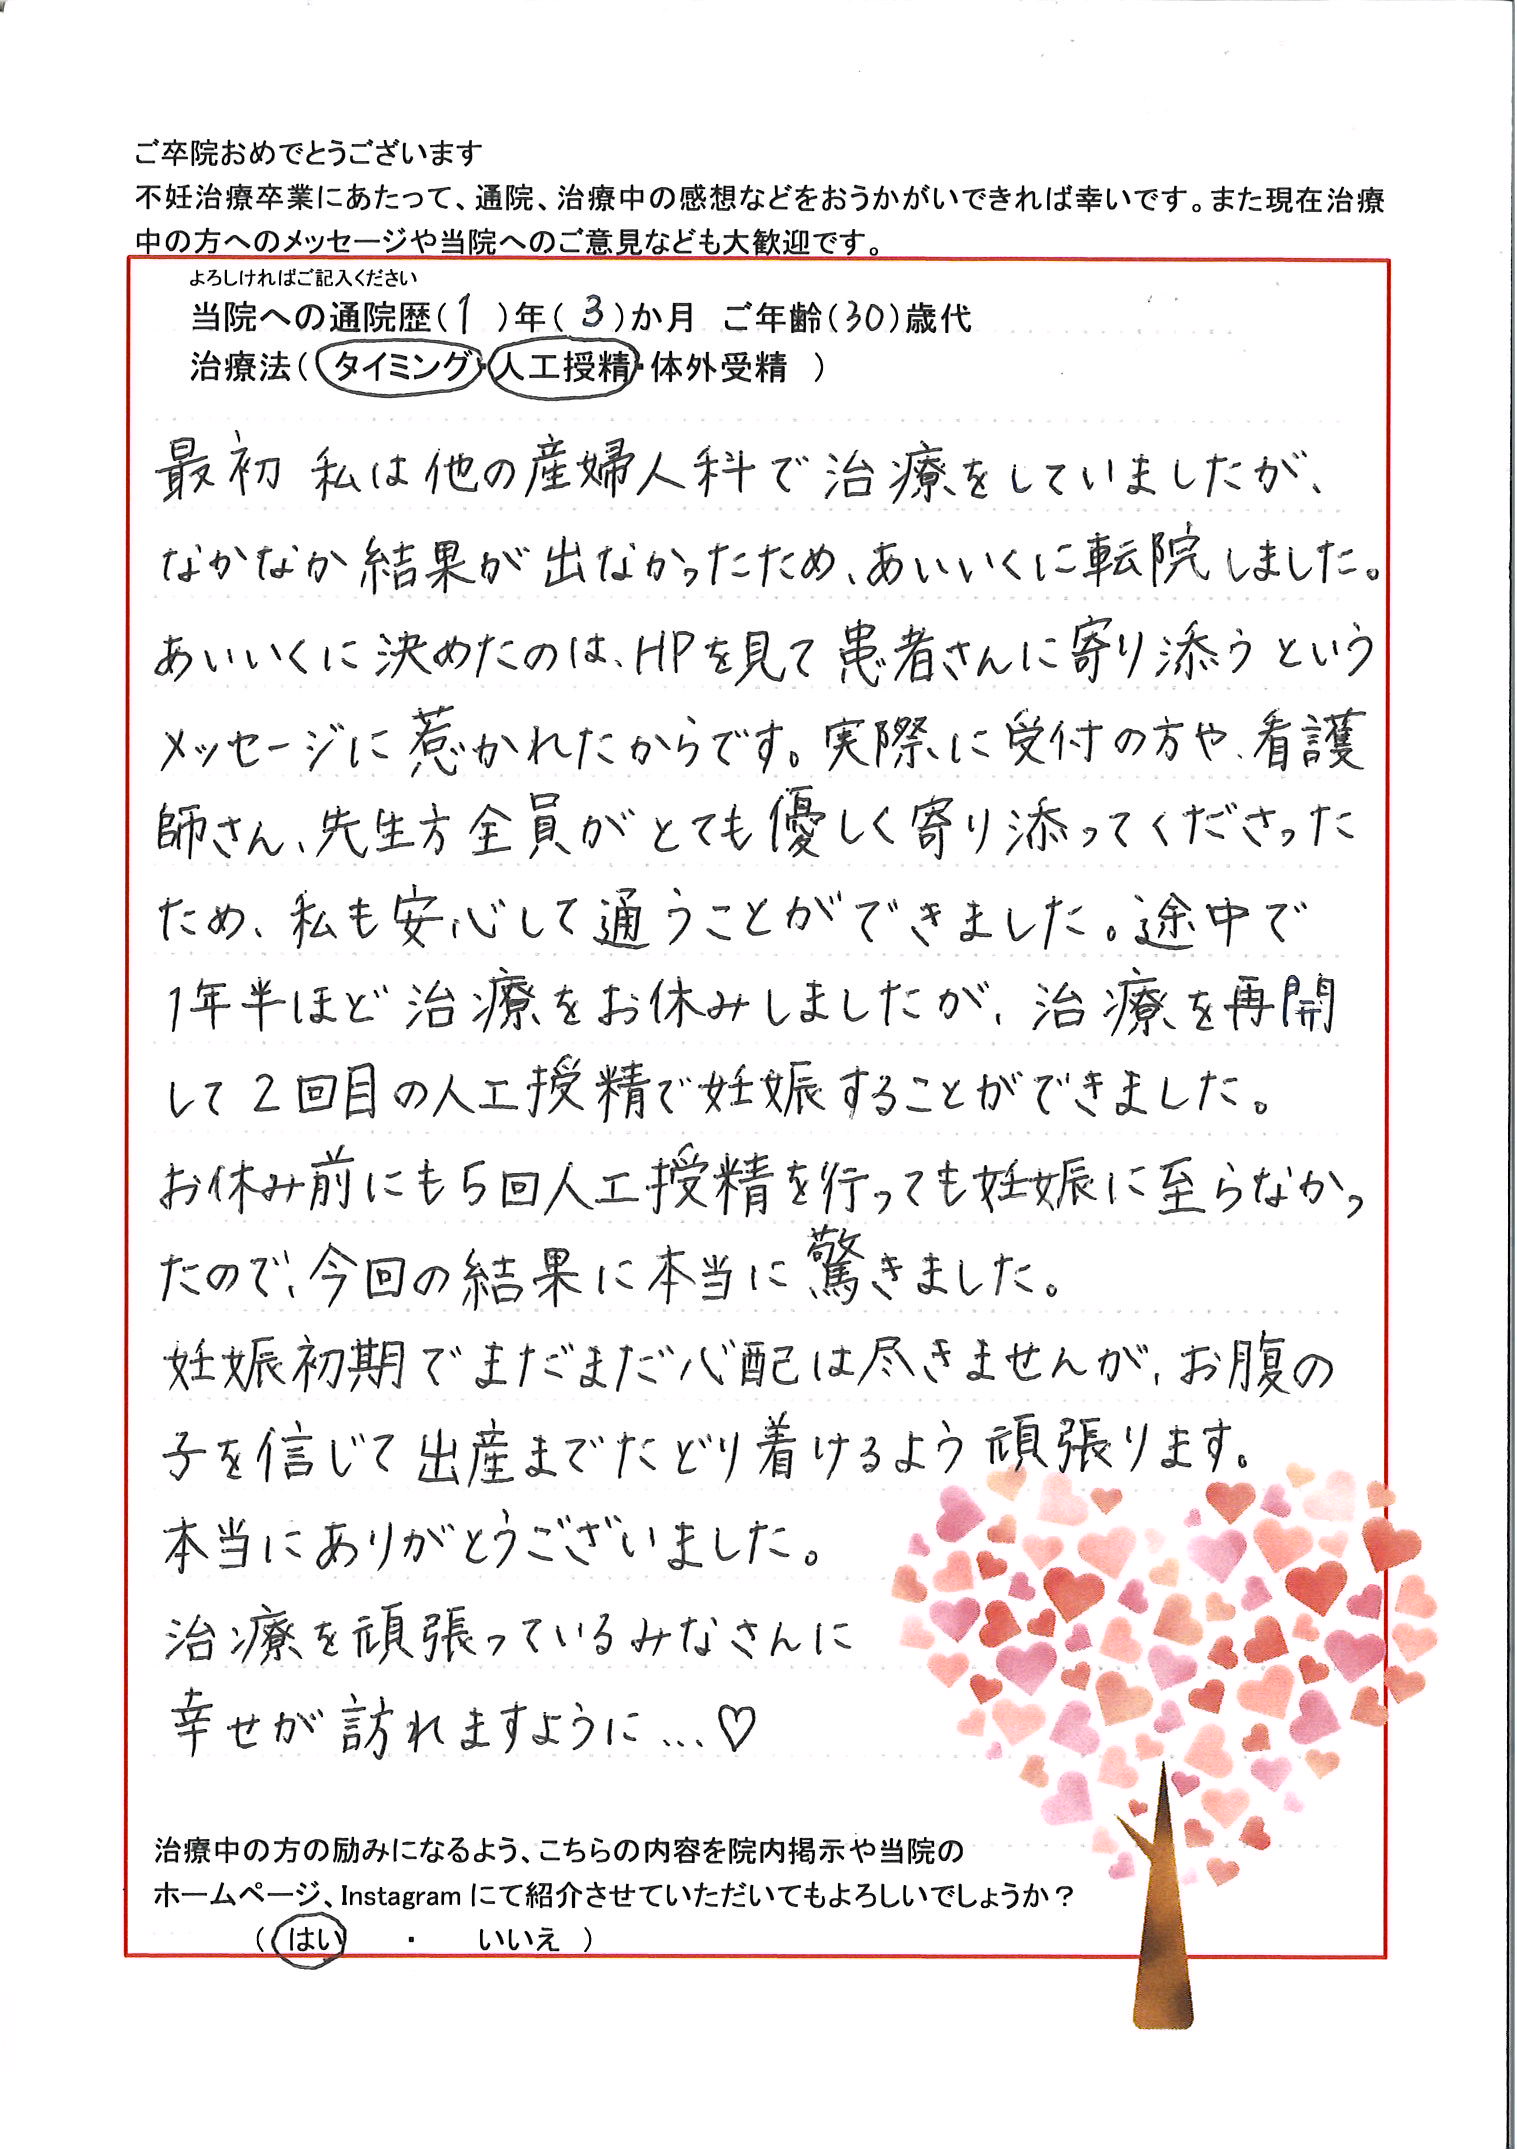 ご卒院おめでとうございます
不妊治療卒業にあたって、通院、治療中の感想などをおうかがいできれば幸いです。また現在治療
中の方へのメッセージや当院へのご意見なども大歓迎です。
よろしければご記入ください
当院への通院歴(1)年(3)か月 ご年齢(30)歳代
治療法(タイミング・人工授精・体外受精)
最初 私は他の産婦人科で治療をしていましたが、
なかなか結果が出なかったため、あいいくに転院しました。
あいいくに決めたのは、HPを見て患者さんに寄り添うという
メッセージに惹かれたからです。実際に受付の方や、看護
師さん、先生方全員がとても優しく寄り添ってくださった
ため、私も安心して通うことができました。途中で
1年半ほど治療をお休みしましたが、治療を再開
して2回目の人工授精で妊娠することができました。
お休み前にも5回人工授精を行っても妊娠に至らなかっ
たので、今回の結果に本当に驚きました。
妊娠初期でまだまだ心配は尽きませんが、お腹の
子を信じて出産までたどり着けるよう頑張ります。
本当にありがとうございました。
治療を頑張っているみなさんに
幸せが訪れますように…♡
治療中の方の励みになるよう、こちらの内容を院内掲示や当院の
ホームページ、Instagramにて紹介させていただいてもよろしいでしょうか?
(はい ・ いいえ)